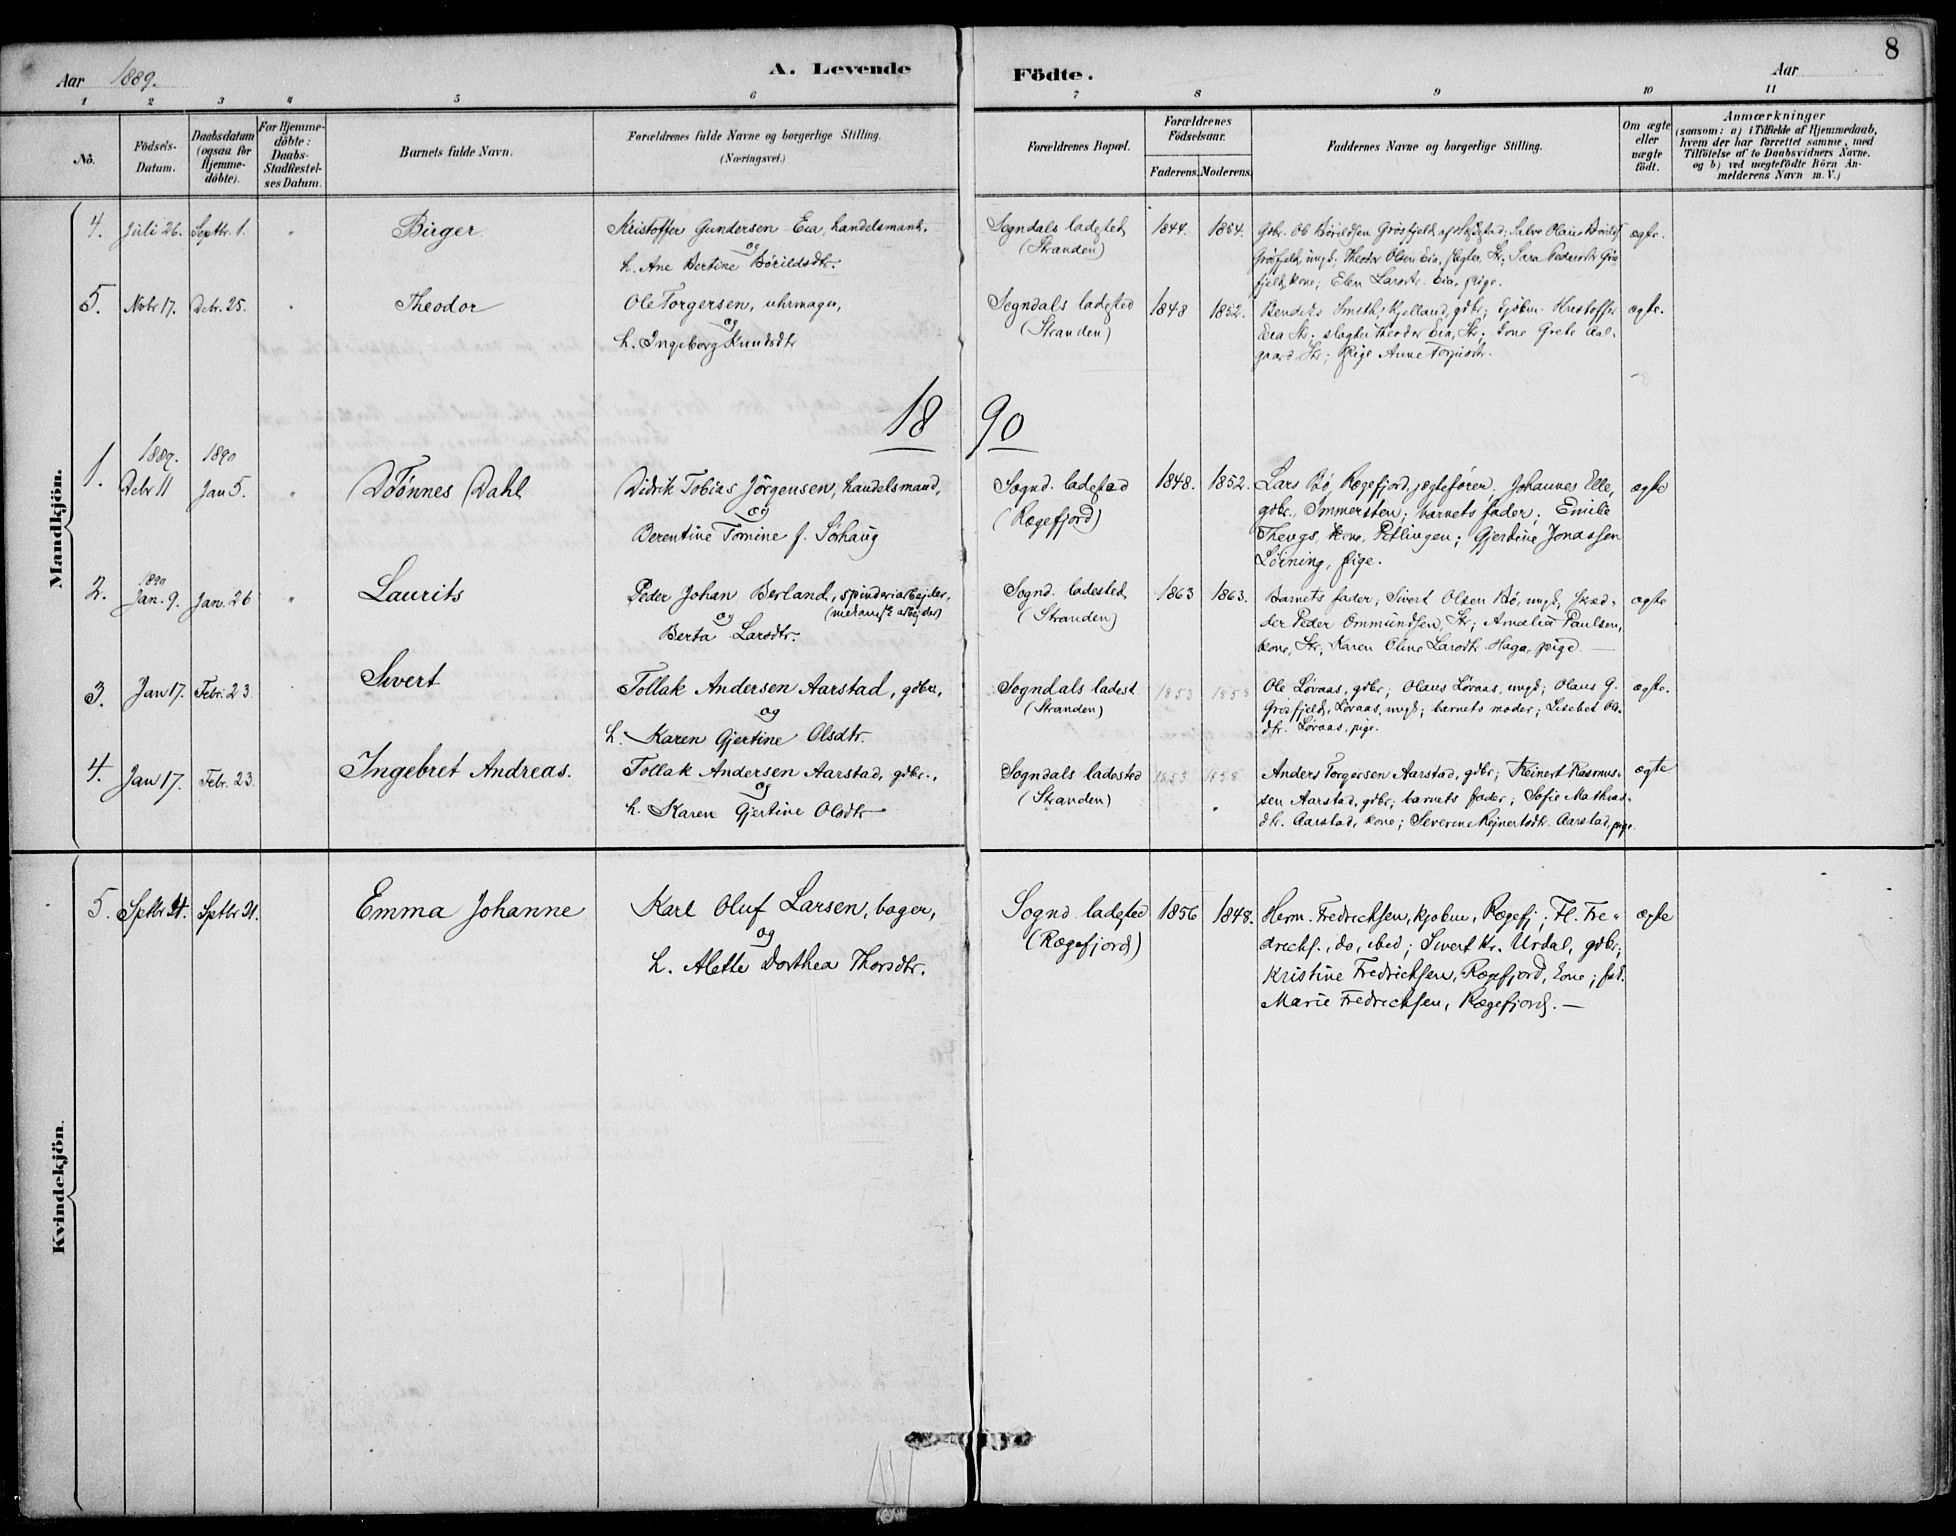 8
Aar 1889.
A. Levende Födte.
Aar
1 2 3 4 5 6 7 8 9 10 11
Nô.
Födsels-Datum.
Daabsdatum (ogsaa for Hjemme-döbte).
For Hjemme-döbte: Daabs-Stadfæstel-ses Datum.
Barnets fulde Navn.
Forældrenes fulde Navne og borgerlige Stilling.
(Næringsvei.)
Forældrenes Bopæl.
Forældrenes Födselsaar.
Faderens. Moderens.
Faddernes Navne og borgerlige Stilling.
Om ægte eller uægte födt.
Anmærkninger
(saasom: a) i Tilfælde af Hjemmedaab, hvem der har forrettet samme, med Tilföielse af to Daabsvidners Navne, og b) ved uægtefödte Börn An-melderens Navn m. V.)
Mandkjön.
4. Juli 26. Septbr. 1. " Birger
Kristoffer Gundersen Eia, handelsmand,
og
h. Ane Bertine Børildsdtr.
Sogndals ladested
(Stranden)
1844. 1854.
Gbr. Ole Børildsen Grøsfjeld, af Olaus
Grøsfjeld, ungk. Theodor Olsen Eia, slagter, Str; Sara Pedersdtr Grøs-
fjeld, kone; Elen Larsdtr. Eia, pige.
ægte.
5. Novbr 17. Decbr. 25. " Theodor
Ole Torgersen, uhrmager,
og
h. Ingeborg Knudsdtr
Sogndals ladested
(Stranden)
1848 1852.
Smith, Kjelland, gdbr; kjøbm. Kristoffer
Eia Str; slagter Theodor Eia, Str; kone Grete Aal-
gaard, Str; Pige Anne
ægte.
18 90
1. 1889. Decbr 11 1890 Jan 5. " Tönnes Dahl
Didrik Tobias Jörgensen, handelsmand,
og
Berentine Tomine f. Sörhaug
Sognd. ladested
(Rægefjord)
1848. 1852.
Lars Bø, Rægefjord, jægtefører, Johannes Elle,
gdbr., Immersten; barnets fader; Emilie
Thengs, kone, Gjerdine Jonassen
Löining, pige.
ægte
2. 1890 Jan. 9. Jan. 26 " Laurits
Peder Johan Berland, spinderiarbejder,
(mekanisk arbejder)
og
Berta Larsdtr.
Sognd. ladested
(Stranden)
1863 1863.
Barnets fader, Sivert Olsen Bø, ungk, skræd-
der Peder Ommundsen, Str; Amalia Paulsen,
kone, Str; Karen Oline Larsdtr. Haga, pige. —
ægte
3. Jan 17. Febr. 23. Sivert
Tollak Andersen Aarstad, gdbr.,
og
h. Karen Gjertine Olsdtr.
Sogndals ladest.
(Stranden)
1853 1858
Ole Løvaas, gdbr; Olaus Løvaas, ungk; Olaus G.
Grøsfjeld, Løvaas, ungk; barnets moder; Lisebet Ols-
dtr. Løvaas, pige.
ægte.
4. Jan 17. Febr. 23. Ingebret Andreas.
Tollak Andersen Aarstad, gdbr.,
og
h. Karen Gjertine Olsdtr
Sogndals ladested
(Stranden)
1853 1858
Anders Torgersen Aarstad, gdbr; Reinert Rasmus-
sen Aarstad, gdbr; barnets fader; Sofie Mathias-
dtr. Aarstad, kone; Severine Rejnertsdtr. Aarstad, pige.
ægte
Kvindekjön.
5. Septbr 21. Septbr 21. Emma Johanne
Karl Oluf Larsen, bager,
og
h. Alette Dorthea Thorsdtr.
Sognd. ladested
(Rægefjord)
1856 1848.
Herm. Fredrichsen, kjøbm, Rægefj; Fl. Fre-
drichs., do, ibid; Sivert Kr. Urdal, gdbr;
Kristine Fredrichsen, Rægefjord, kone;
Marie Fredrichsen, Rægefjord. —
ægte